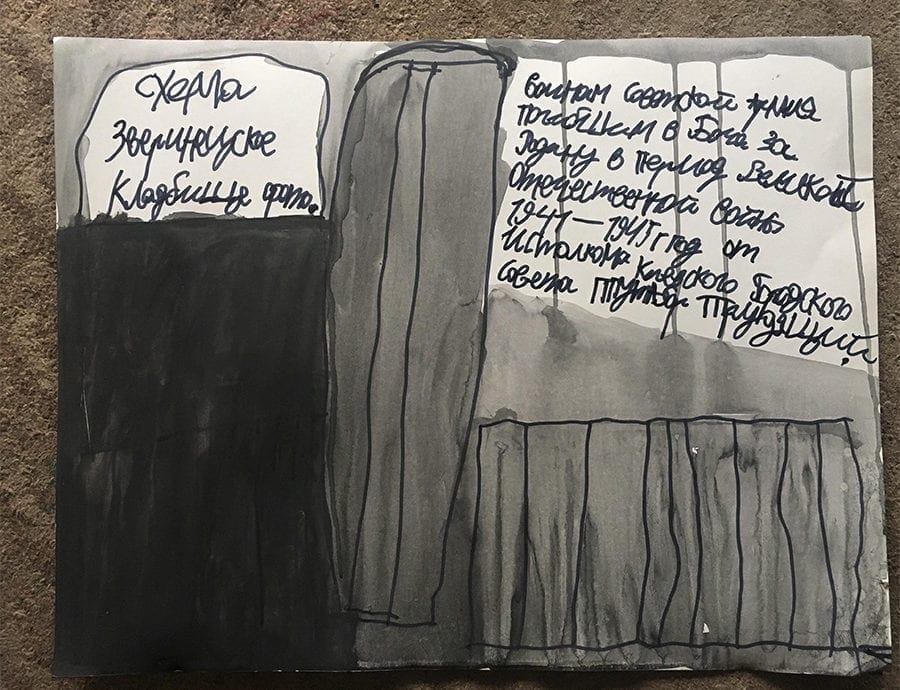 схема
Зверинецуское
Кладбище фото.
воинам советской армия
погибшим в Боях за
Родину в период Великой
Отечественной войны
1941—1945г год от
Исполкома Киевского Городского
совета